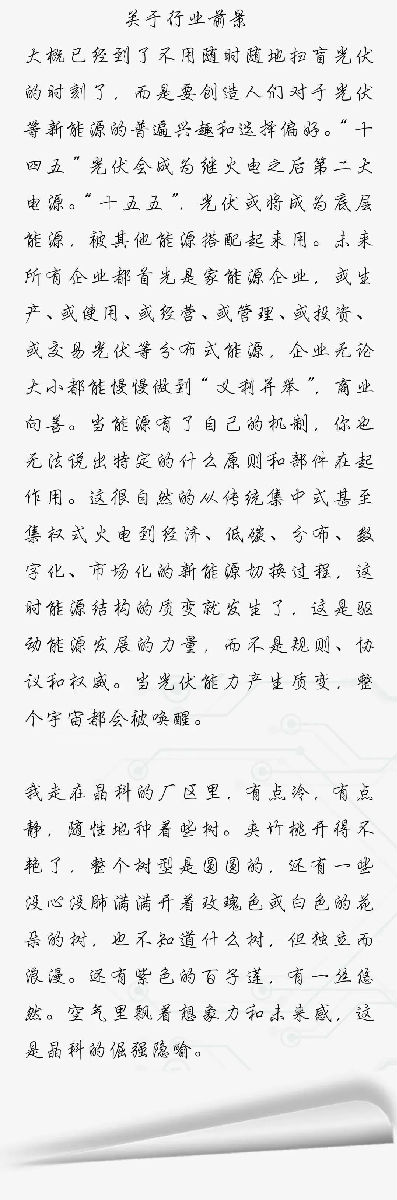 关于行业前景
大概已经到了不用随时随地扫盲光伏
的时刻了，而是要创造人们对于光伏
等新能源的普遍兴趣和选择偏好。“十
四五”光伏会成为继火电之后第二大
电源。“十五五”，光伏或将成为底层
能源，被其他能源搭配起来用。未来
所有企业都首先是家能源企业，或生
产、或使用、或经营、或管理、或投资、
或交易光伏等分布式能源，企业无论
大小都能慢慢做到“义利并举”，商业
向善。当能源有了自己的机制，你也
无法说出特定的什么原则和部件在起
作用。这很自然的从传统集中式甚至
集权式火电到经济、低碳、分布、数
字化、市场化的新能源切换过程，这
时能源结构的质变就发生了，这是驱
动能源发展的力量，而不是规则、协
议和权威。当光伏能力产生质变，整
个宇宙都会被唤醒。
我走在晶科的厂区里，有点冷，有点
静，随性地种着些树。夹竹桃开得不
艳了，整个树型是圆圆的，还有一些
没心没肺满满开着玫瑰色或白色的花
朵的树，也不知道什么树，但独立而
浪漫。还有紫色的百子莲，有一丝悠
然。空气里飘着想象力和未来感，这
是晶科的倔强隐喻。